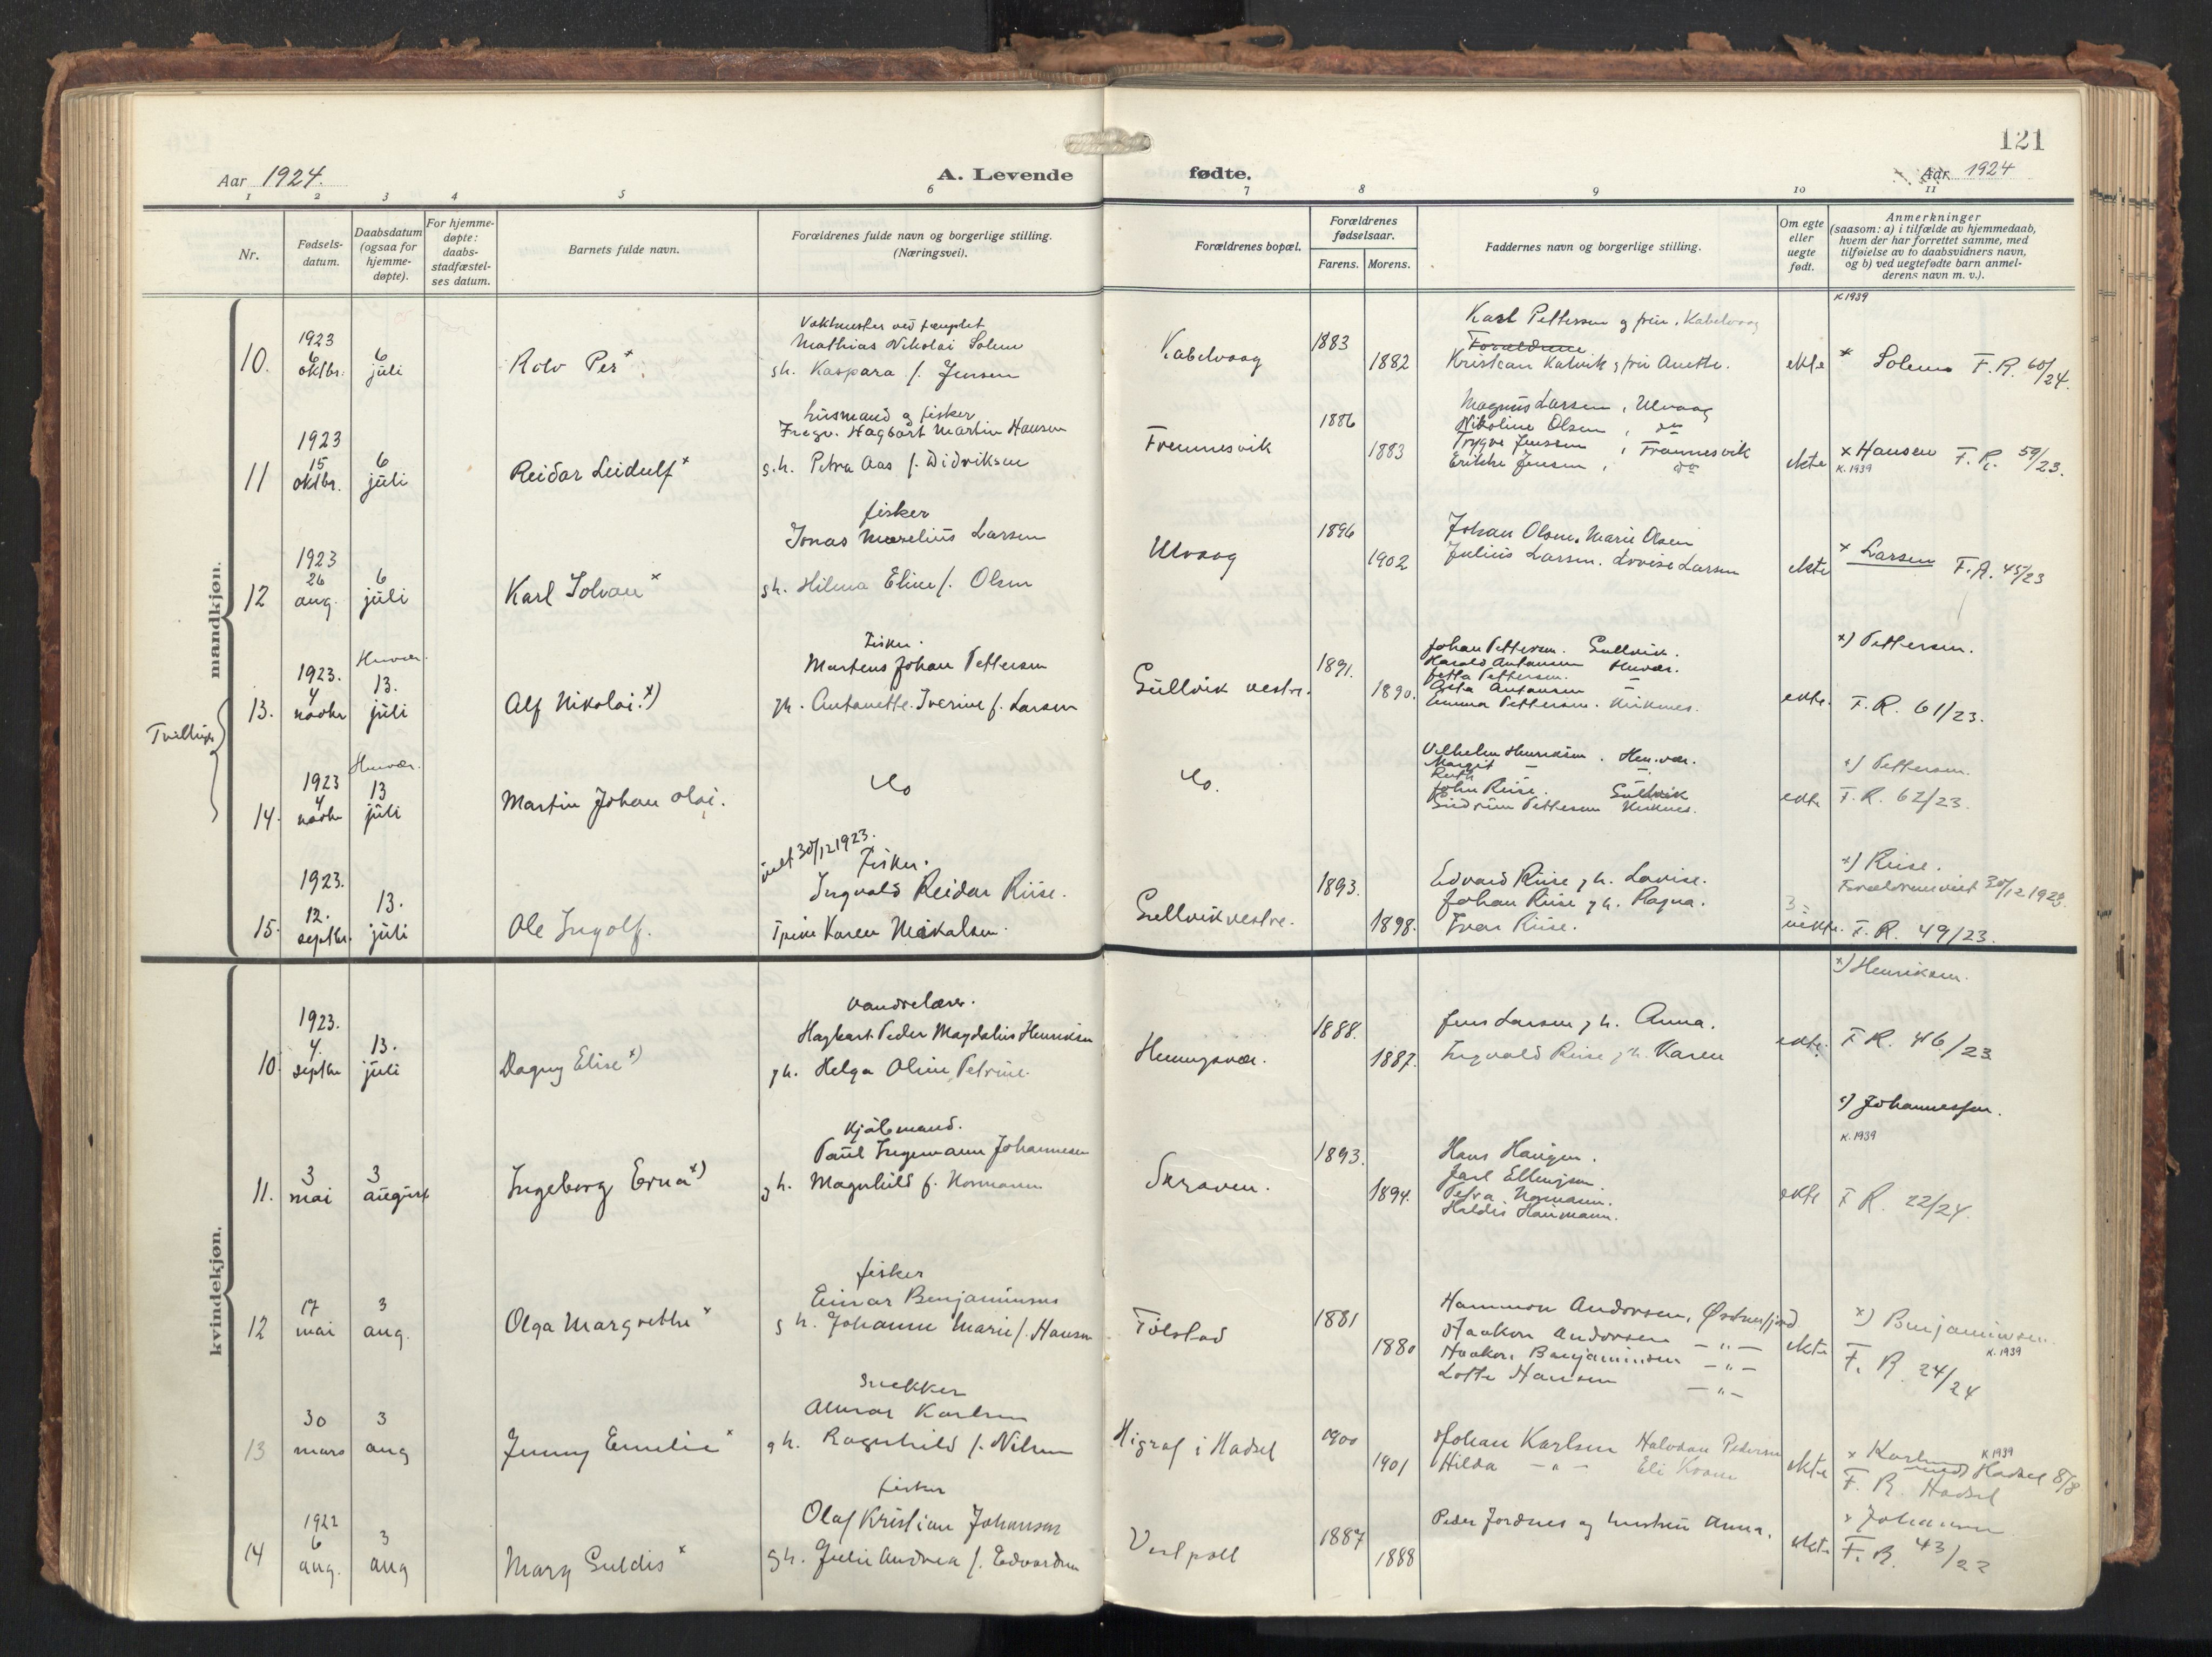 121
Aar 1924.
A. Levende
fødte.
Aar 1924
1 2 3 4 5 6 7 8 9 10 11
Nr.
Fødsels-
datum.
Daabsdatum
(ogsaa for
hjemme-
døpte).
For hjemme-
døpte:
daabs-
stadfæstel-
ses datum.
Barnets fulde navn.
Forældrenes fulde navn og borgerlige stilling.
(Næringsvei).
Forældrenes bopæl.
Forældrenes
fødselsaar.
Farens. Morens.
Faddernes navn og borgerlige stilling.
Om egte
eller
uegte
født.
Anmerkninger
(saasom: a) i tilfælde av hjemmedaab,
hvem der har forrettet samme, med
tilføielse av to daabsvidners navn,
og b) ved uegtefødte barn anmel-
derens navn m. v.).
mandkjøn.
10. 1923 6 oktbr. 6 juli
Rolv Per x
Mathias Nikolai Solem
gh. Kaspara f. Jensen
Kabelvaag
1883
1882
Karl Pettersen g frue, Kabelvaag
Forældrene
Kristian Kalvik g frue Anette.
ekte
K 1939
x Solem F.R. 60/24.
11 1923 15 oktbr. 6 juli
Reidar Leidulf x
husmand g fisker
Fregv. Hagbart Martin Hansen
g.h. Petra Aas f. Didriksen
Fremnesvik
1886
1883
Magnus Larsen, Ulvaag
Nikoline Olsen, do
Trygve Jenssen, Framnesvik
Erikke Jensen, do
ekte
x Hansen F.R. 59/23.
K. 1939
12 1923 26 aug. 6 juli
Karl Johan x
fisker
Jonas Marelius Larsen
gh. Hilma Eline f. Olsen
Ulvaag
1896
1902
Johan Olsen. Marie Olsen
Julius Larsen. Lovise Larsen
ekte
x Larsen F.R. 45/23
Tvillinger
13. 1923. 4 novbr 13. juli
Alf Nikolai. x)
Fisker.
Martens Johan Pettersen
gh. Antonette Iverine f. Larsen
Gullvik vestre.
1891.
1890.
Johan Pettersen. Gullvik.
Harald Antonsen
Jetta Pettersen.
Antonsen
Emma Pettersen.
ekte.
x) Pettersen.
F.R. 61/23.
14. 1923 4 novbr 13 juli
Martin Johan Olai.
do
do.
Vilhelm Henriksen. Hen.vær.
Margit
Ruth
John Riise. Gullvik
Pettersen
ekte
x) Pettersen.
F.R. 62/23.
15. 1923. 12. septbr. 13. juli
Ole Ingolf.
viet 30/12 1923.
Fisker.
Ingvald Reidar Riise.
Karen Mikalsen.
Gullvik vestre.
1893.
1898.
Edvard Riise g h. Lovise.
Johan Riise g h. Ragna.
Ivar Riise.
uekte.
x) Riise.
Forældrene viet 30/12 1923.
F.R. 49/23.
kvindekjøn.
10. 1923. 4. septbr 13. juli
Dagny Elise x)
Vandrelærer.
Hagbart Peder Magdalius Henriksen
gh. Helga Oline Petrine.
Henningsvær.
1888.
1887.
Jens Larsen g h. Anna.
Ingvald Riise g h. Karen
ekte.
x) Henriksen.
F.R. 46/23
11. 3 mai 3 august
Ingeborg Erna x)
Kjøbmand.
Paul Ingemann Johannesen
gh. Magnhild f. Normann
Skraaven.
1893.
1894.
Hans Haugen.
Jarl Ellingsen.
Petra Normann.
Haldis Normann.
ekte
x) Johannessen.
K. 1939
F.R. 22/24.
12 17 mai 3 aug.
Olga Margrethe x
fisker
Einar Benjaminsen
gh. Johanne Marie f. Hansen
Følstad
1881
1880
Hammon Andorsen, Østnesfjord
Haakon Andorsen - " -
Haakon Benjaminsen - " -
Lotte Hansen - " -
ekte
x) Benjaminsen.
K. 1939
F.R. 24/24
13 30 mars 3 aug
Jenny Emelie x
Snekker
Almar Karlsen
gh. Ragnhild f. Nilsen
Higraf i Hadsel
1900
1901
Johan Karlsen Halvdan Pedersen
Hilda - " - Eli Krane
ekte
x Karlsen
K 1939
meldt Hadsel 8/8
F.R. Hadsel
14 1922 6 aug. 3 aug
Mary Guldis x
fisker
Olaf Kristian Johansen
gh. Julie Andrea f. Edvardsen
Vestpoll
1887
1888
Peder Jordnes og hustru Anna.
ekte
x Johansen
F.R. 43/22